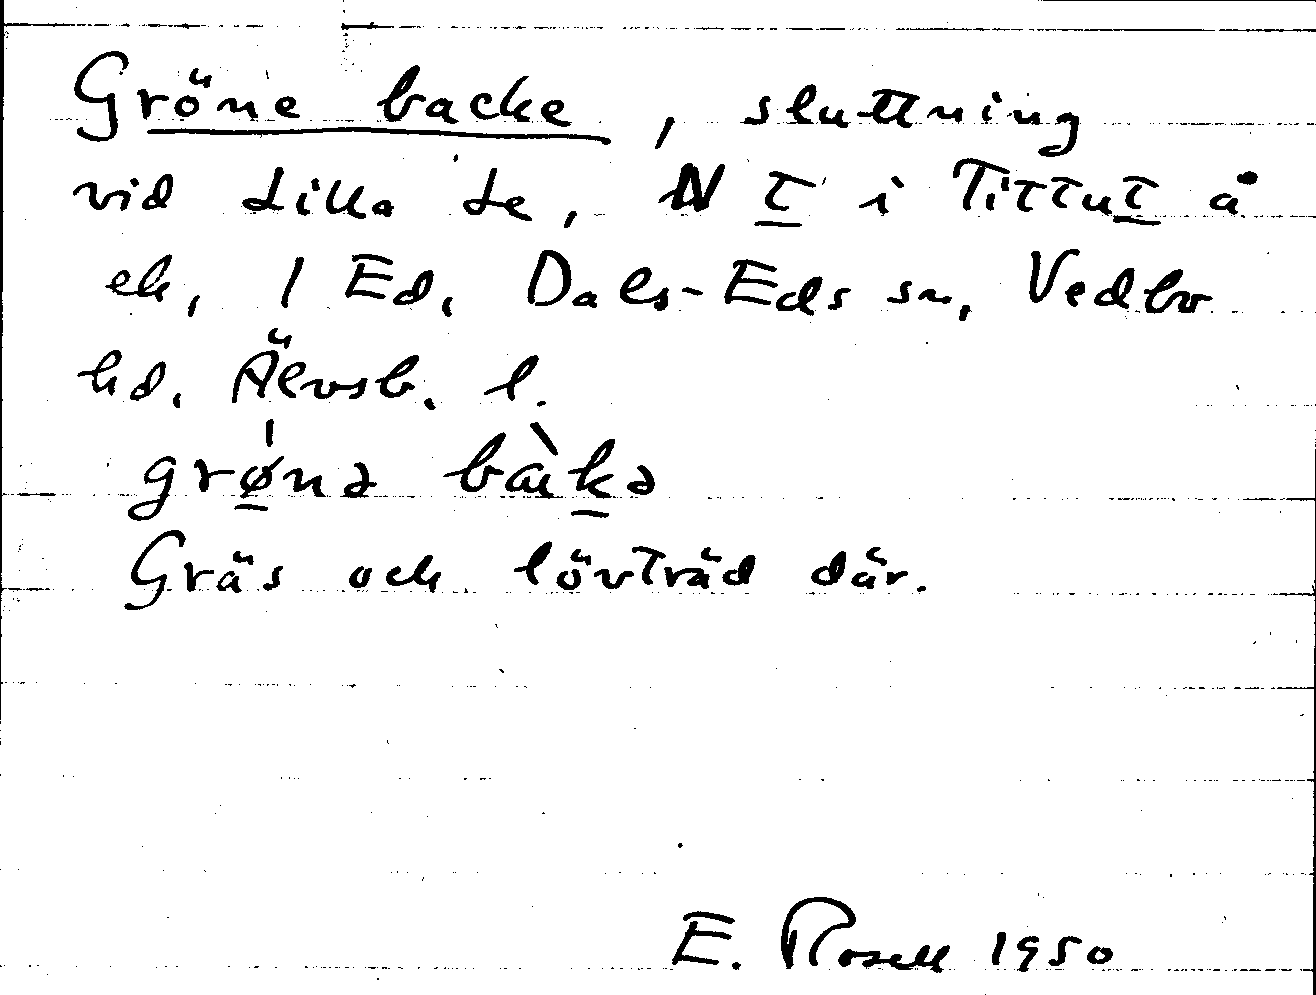 Gröne backe, sluttning
vid Lilla Le, N t i Tittut å
ek, 1 Ed, Dals-Eds sn, Vedbo
hd, Älvsb. l.
grønə bàkə
Gräs och lövträd där.
E. Rosell 1950